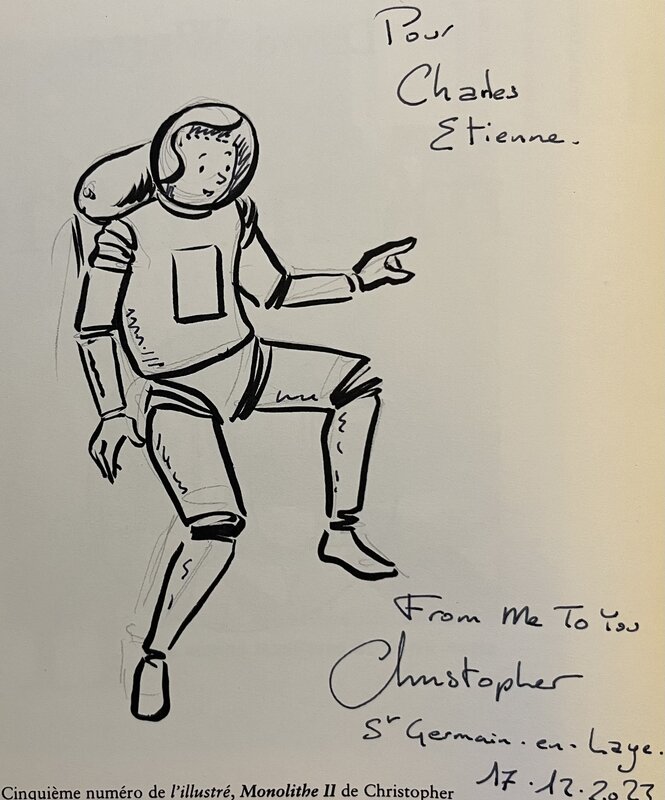 Pour
Charles
Etienne.
From Me To You
Christopher
St Germain-en-Laye.
17.12.2023
Cinquième numéro de l'illustré, Monolithe II de Christopher